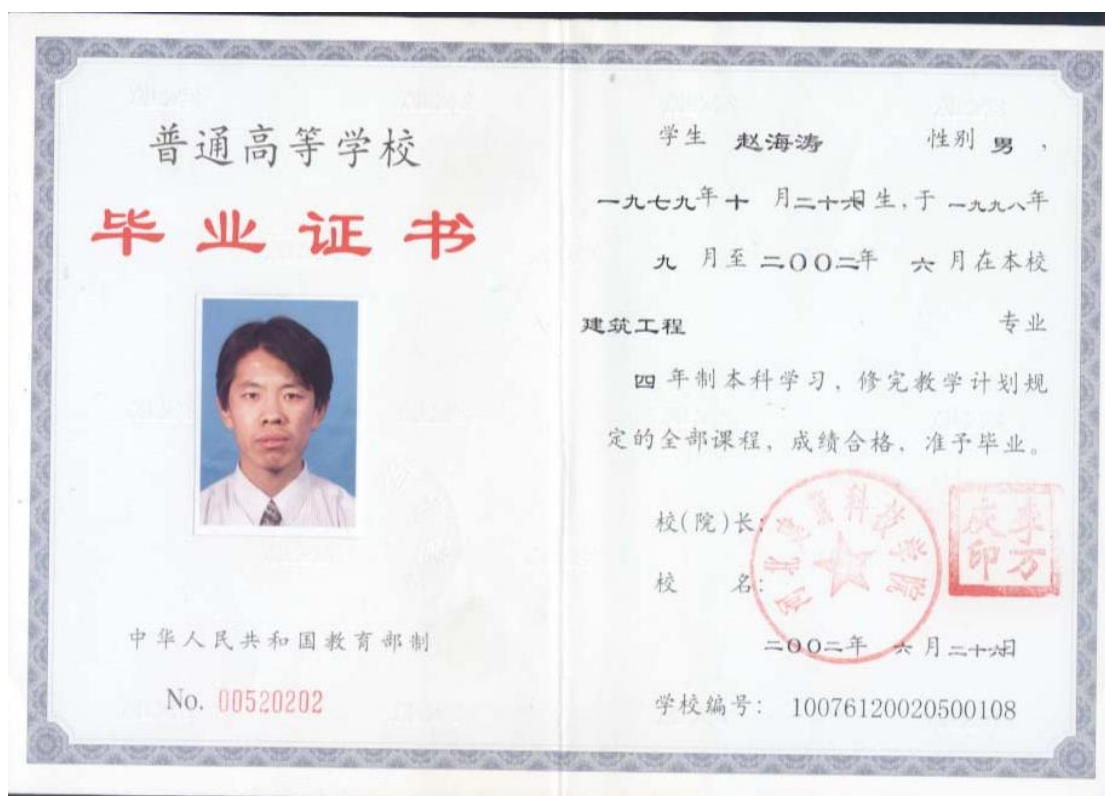 普通高等学校
毕业证书
中华人民共和国教育部制
No. 00520202
学生 赵海涛 性别 男，
一九七九年十 月二十六日生，于 一九九八年
九 月至 二〇〇二年 六 月在本校
建筑工程 专业
四 年制本科学习，修完教学计划规
定的全部课程，成绩合格，准予毕业。
校(院)长：
李万庆印
校 名：
河北建筑科技学院
二〇〇二年 六 月二十六日
学校编号： 10076120020500108